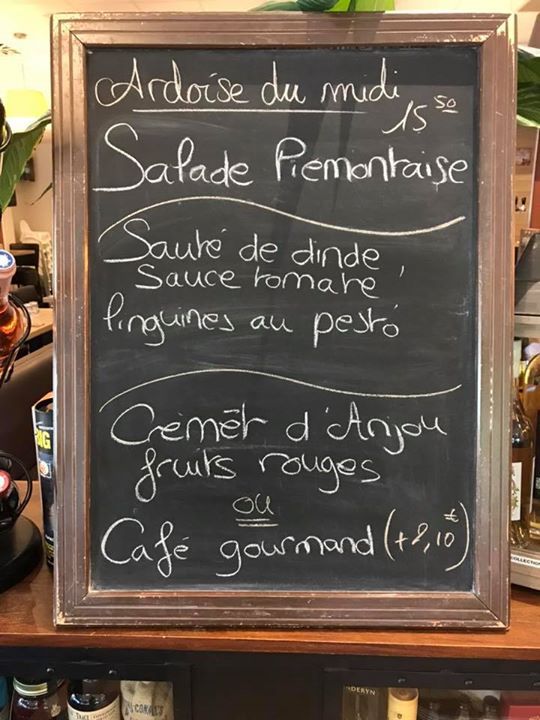 Ardoise du midi
15 50
Salade Piemontaise
Sauté de dinde
sauce tomate,
linguines au pesto
Crémêt d'Anjou
fruits rouges
ou
Café gourmand (+2,10€)
COLLECTION